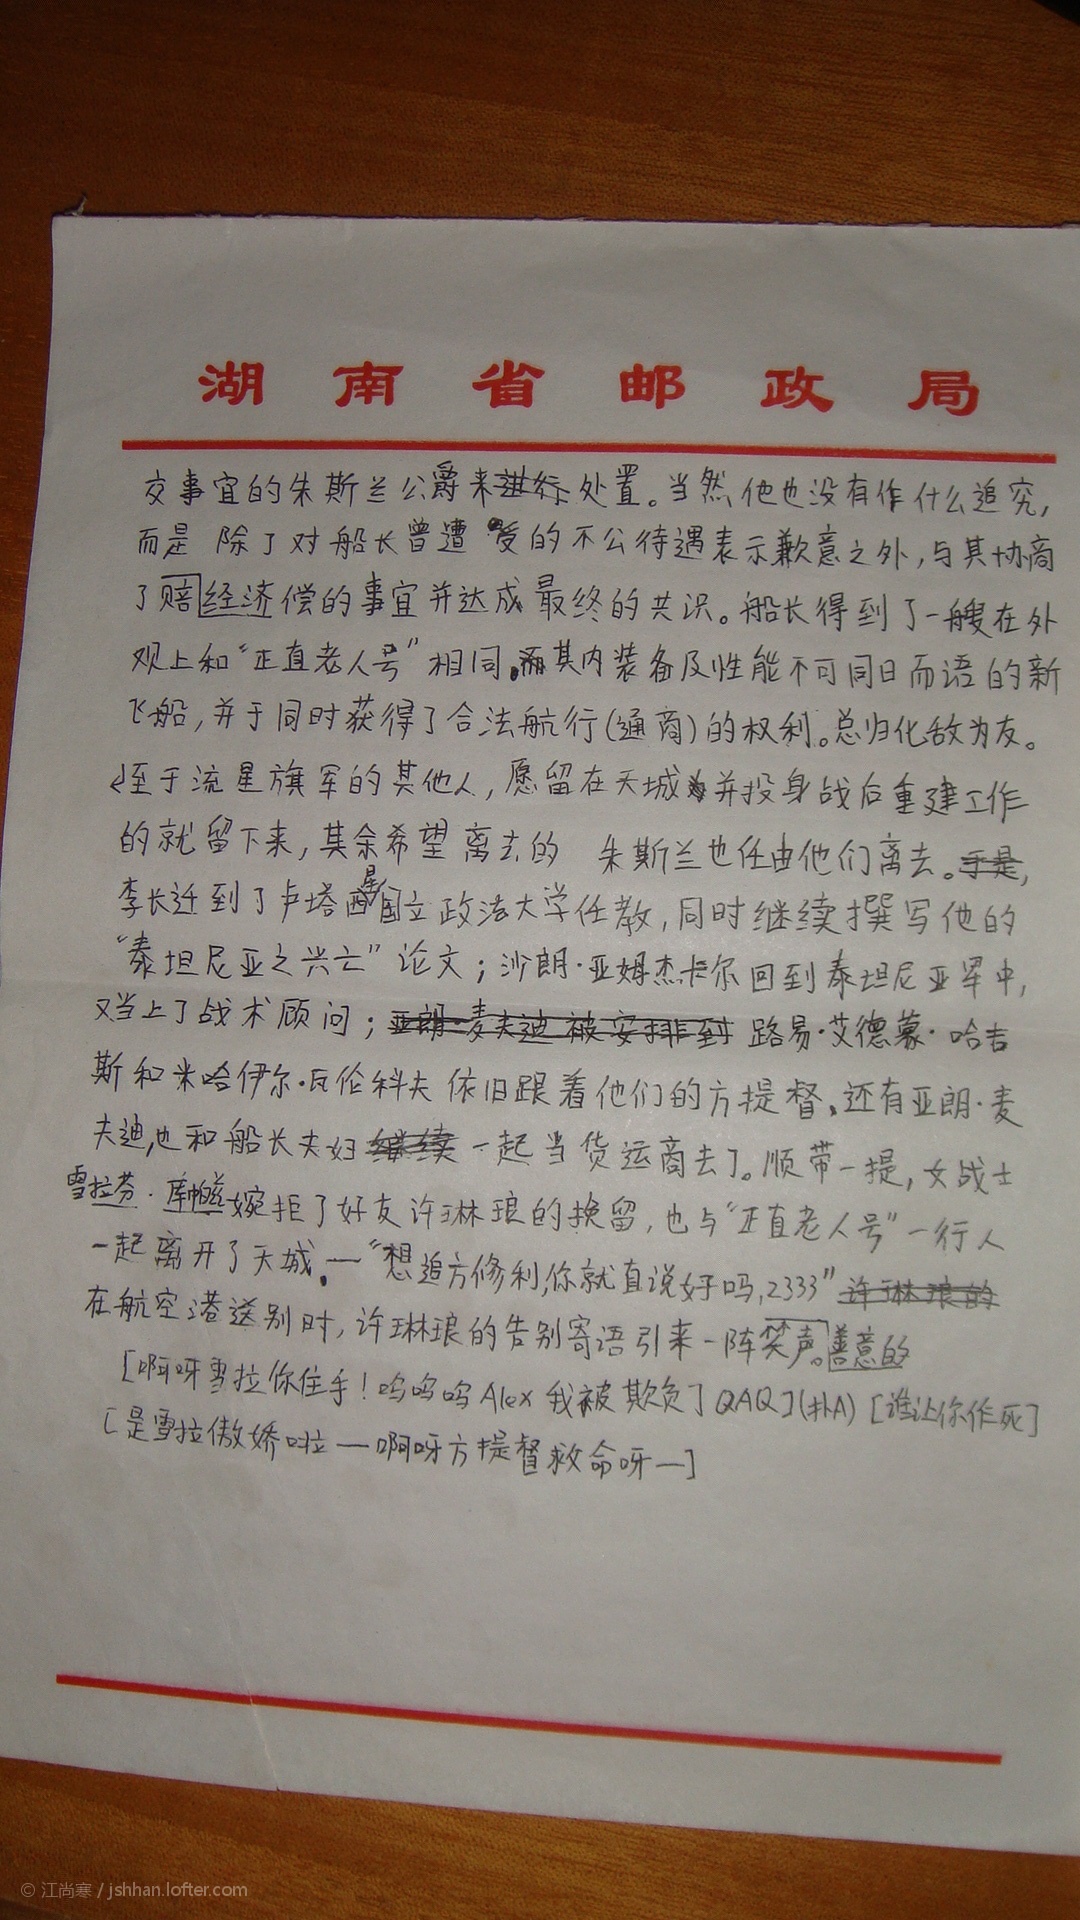 湖南省邮政局
交事宜的朱斯兰公爵来进行处置。当然他也没有作什么追究,
而是除了对船长曾遭受的不公待遇表示歉意之外,与其协商
了赔经济偿的事宜并达成最终的共识。船长得到了一艘在外
观上和“正直老人号”相同,而其内装备及性能不可同日而语的新
飞船,并于同时获得了合法航行(通商)的权利。总归化敌为友。
至于流星旗军的其他人,愿留在天城并投身战后重建工作
的就留下来,其余希望离去的 朱斯兰也任由他们离去。于是,
李长迁到了卢塔西星国立政法大学任教,同时继续撰写他的
“泰坦尼亚之兴亡”论文;沙朗·亚姆杰卡尔回到泰坦尼亚军中,
又当上了战术顾问;亚朗·麦夫迪被安排到路易·艾德蒙·哈吉
斯和米哈伊尔·瓦伦科夫依旧跟着他们的方提督,还有亚朗·麦
夫迪,也和船长夫妇继续一起当货运商去了。顺带一提,女战士
雪拉芬·库帕兹婉拒了好友许琳琅的挽留,也与“正直老人号”一行人
一起离开了天城。—“想追方修利,你就直说好吗,2333”许琳琅的
在航空港送别时,许琳琅的告别寄语引来一阵笑声。善意的
[啊呀雪拉你住手!呜呜呜Alex我被欺负了QAQ](扑A)[谁让你作死]
[是雪拉傲娇啦—啊呀方提督救命呀—]
© 江尚寒 / jshhan.lofter.com